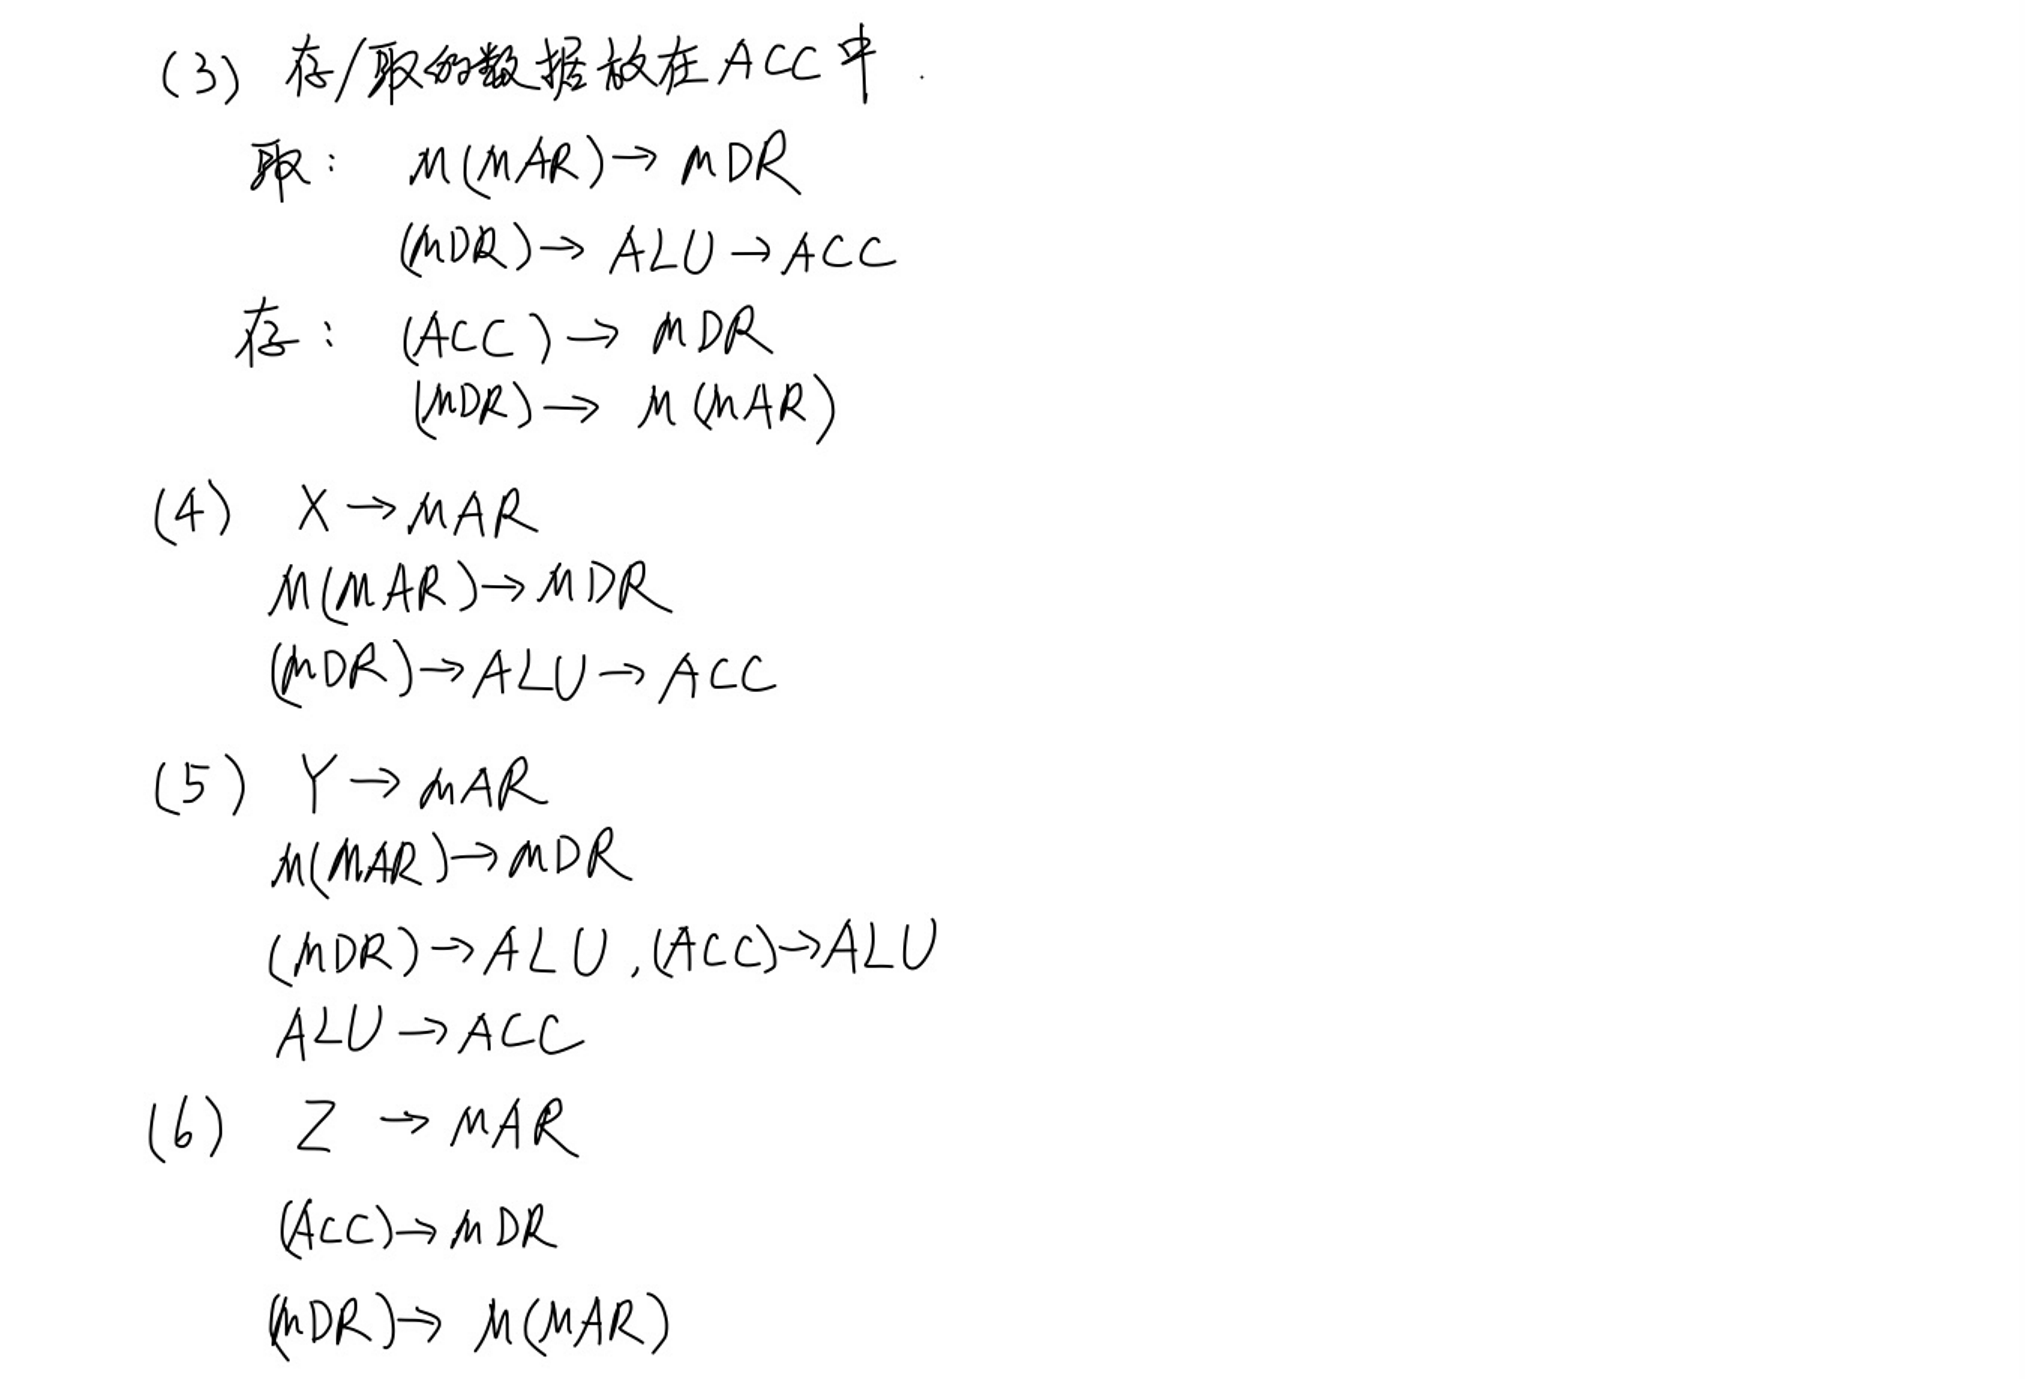 (3) 存/取的数据放在ACC中.
取: M(MAR)→MDR
(MDR)→ALU→ACC
存: (ACC)→MDR
(MDR)→M(MAR)
(4) X→MAR
M(MAR)→MDR
(MDR)→ALU→ACC
(5) Y→MAR
M(MAR)→MDR
(MDR)→ALU,(ACC)→ALU
ALU→ACC
(6) Z→MAR
(ACC)→MDR
(MDR)→M(MAR)